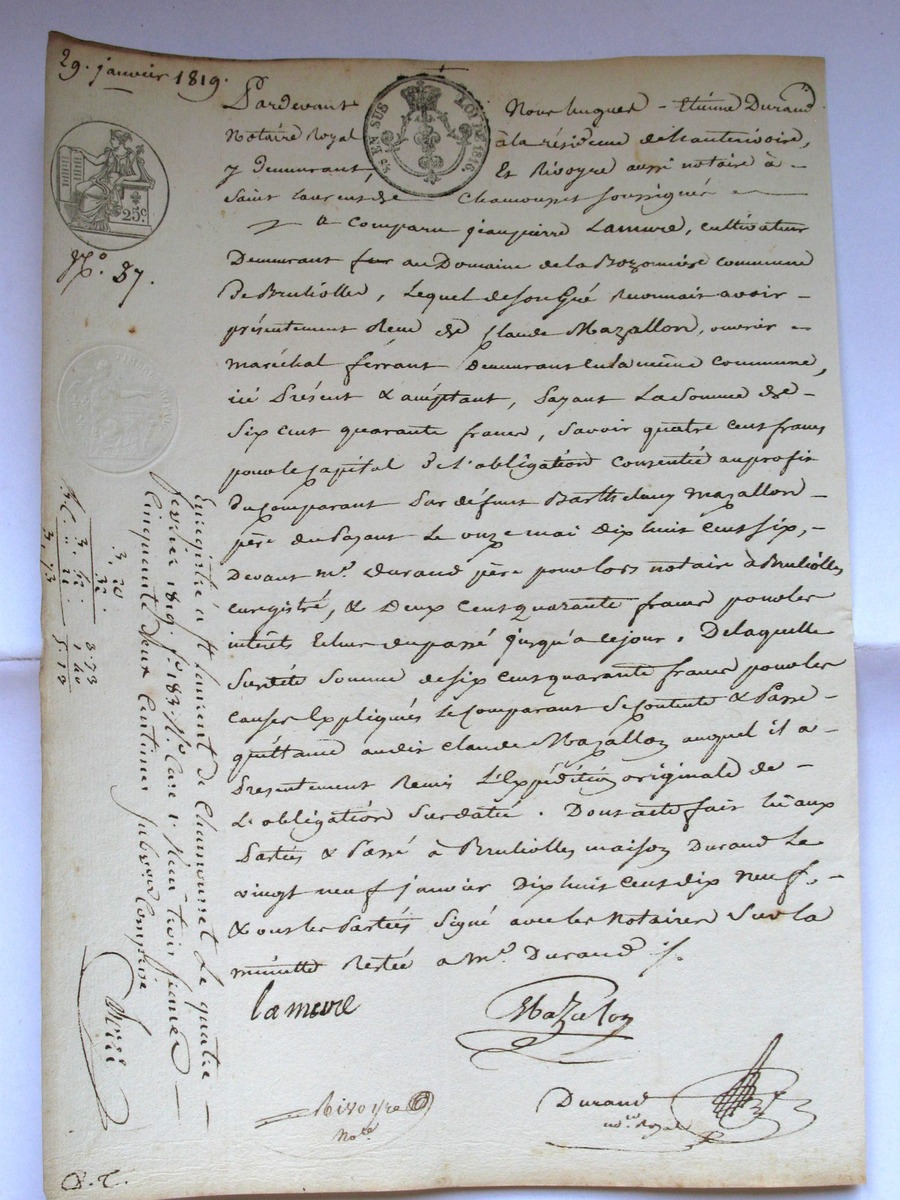 29. janvier 1819.
Pardevant Nous hugues - Etiene Durand
Notaire Royal à la résidence de chantemerle,
y demeurant, Et Rivoyre aussi notaire à
Saint Laurent de Chamousset soussignés
a Comparu jean pierre Lamure, cultivateur
Demeurant au Domaine de la Bozonnière commune
De Brulliolle, Lequel de son Gré Reconnait avoir
présentement Recu de Claude Mazallon, ouvrier
maréchal ferrant Demeurant en la même Commune,
ici Présent & acceptant, payant La Somme de
Six Cent quarante francs, savoir quatre Cent francs
pour le Capital de L'obligation Consentie au profit
du Comparant par défunt Barthelemy Mazallon
père du Payant Le onze mai Dix huit Cent Six,
Devant me. Durand père pour lors notaire à Brulliolles
Enregistré, & Deux Cent quarante francs pour les
interêts Echus du passé jusqu'a ce jour. De laquelle
Susdite Somme de six Cent quarante francs pour les
Causes Expliquées le Comparant Se Contente & Passe
quittance audit Claude Mazallon auquel il a
Présentement Remis L'Expédition originale de
L'obligation Surdatée. Dont acte fait lû aux
Parties & Passé à Brulliolles maison Durand Le
vingt neuf janvier Dix huit Cent dix Neuf,
& ont les Parties Signé avec les Notaires Sur la
minutte Restée a Me. Durand
lamure
Mazalon
Rivoyre
Nore
Durand
nore Royal
EN SUS
LOI DE 1816.
25c.
No. 37.
Enregistré à St Laurent de Chamousset Le quatre
fevrier 1819. fo. 183. Ro. Case 1. Reçu trois francs
Cinquante deux Centimes subvon Comprise
3, 20
32